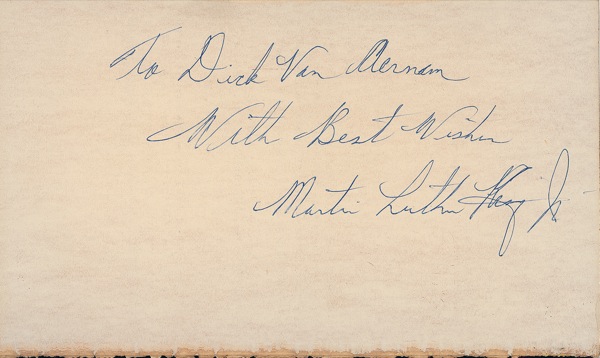 To Dick Van Aernam
With Best Wishes
Martin Luther King Jr